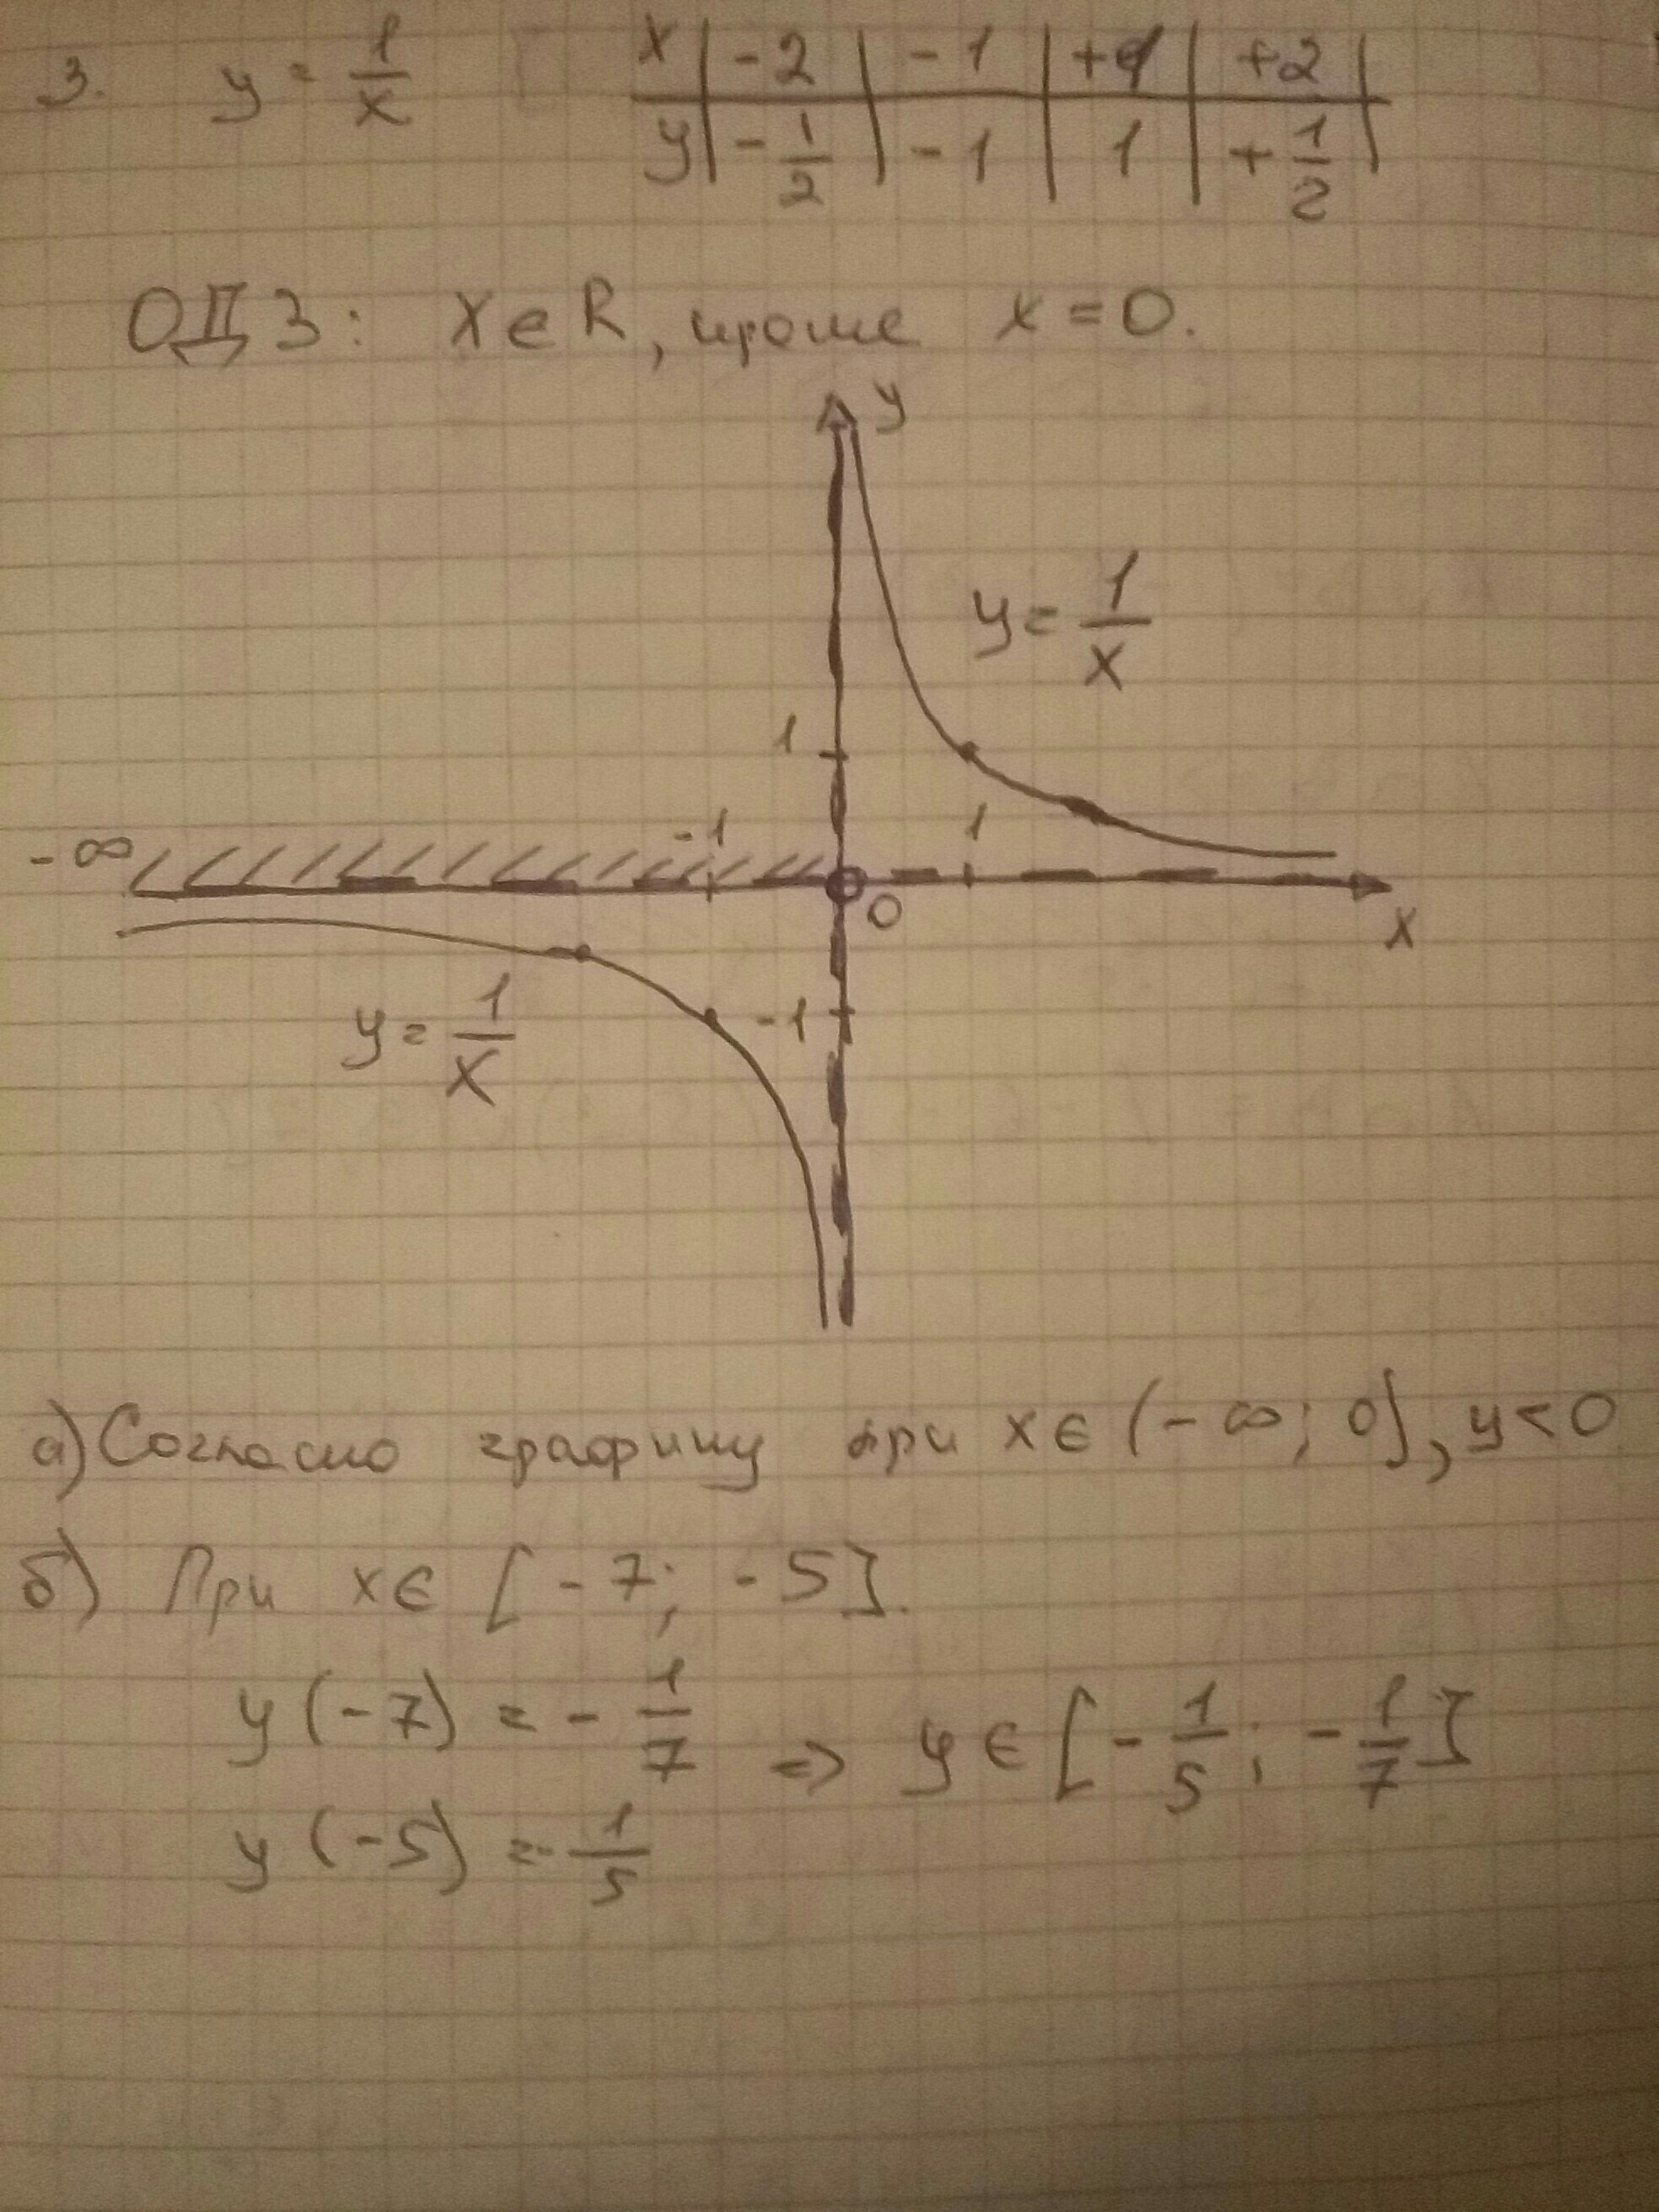 3. y = 1/x
x | -2 | -1 | +1 | +2 |
y | -1/2 | -1 | 1 | +1/2 |
ОДЗ: x∈R, кроме x = 0.
y
y = 1/x
1
-∞ -1 1
0 x
y = 1/x -1
а) Согласно графику при x∈(-∞; 0], y<0
б) При x∈[-7; -5].
y(-7) = -1/7 => y∈[-1/5; -1/7]
y(-5) = -1/5